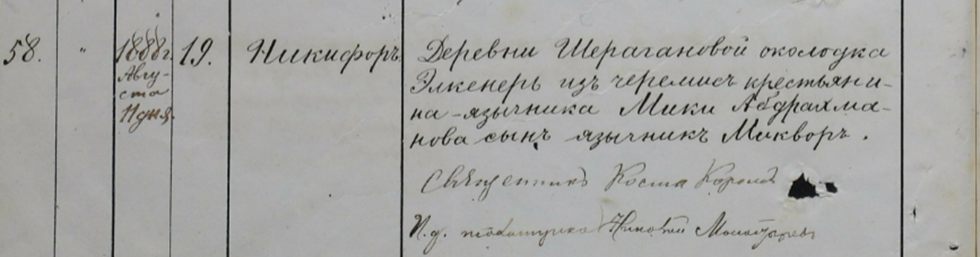 58. " 1888 г. Авгу-
ста
11 дня. 19. Никифоръ. Деревни Шерагановой околодка
Элкенеръ изъ черемисъ крестьяни-
на-язычника Мики Абдрахма-
нова сынъ язычникъ Микворъ.
Священникъ Коста
И. д. псаломщика Николай